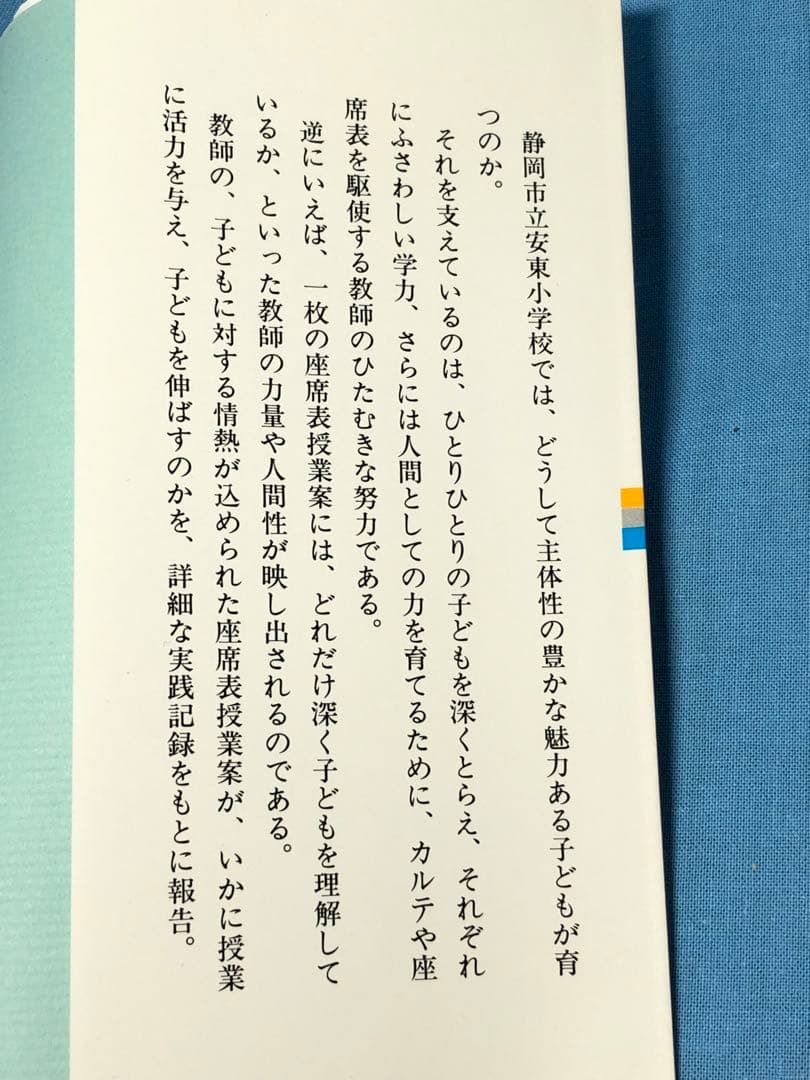 静岡市立安東小学校では、どうして主体性の豊かな魅力ある子どもが育
つのか。
それを支えているのは、ひとりひとりの子どもを深くとらえ、それぞれ
にふさわしい学力、さらには人間としての力を育てるために、カルテや座
席表を駆使する教師のひたむきな努力である。
逆にいえば、一枚の座席表授業案には、どれだけ深く子どもを理解して
いるか、といった教師の力量や人間性が映し出されるのである。
教師の、子どもに対する情熱が込められた座席表授業案が、いかに授業
に活力を与え、子どもを伸ばすのかを、詳細な実践記録をもとに報告。